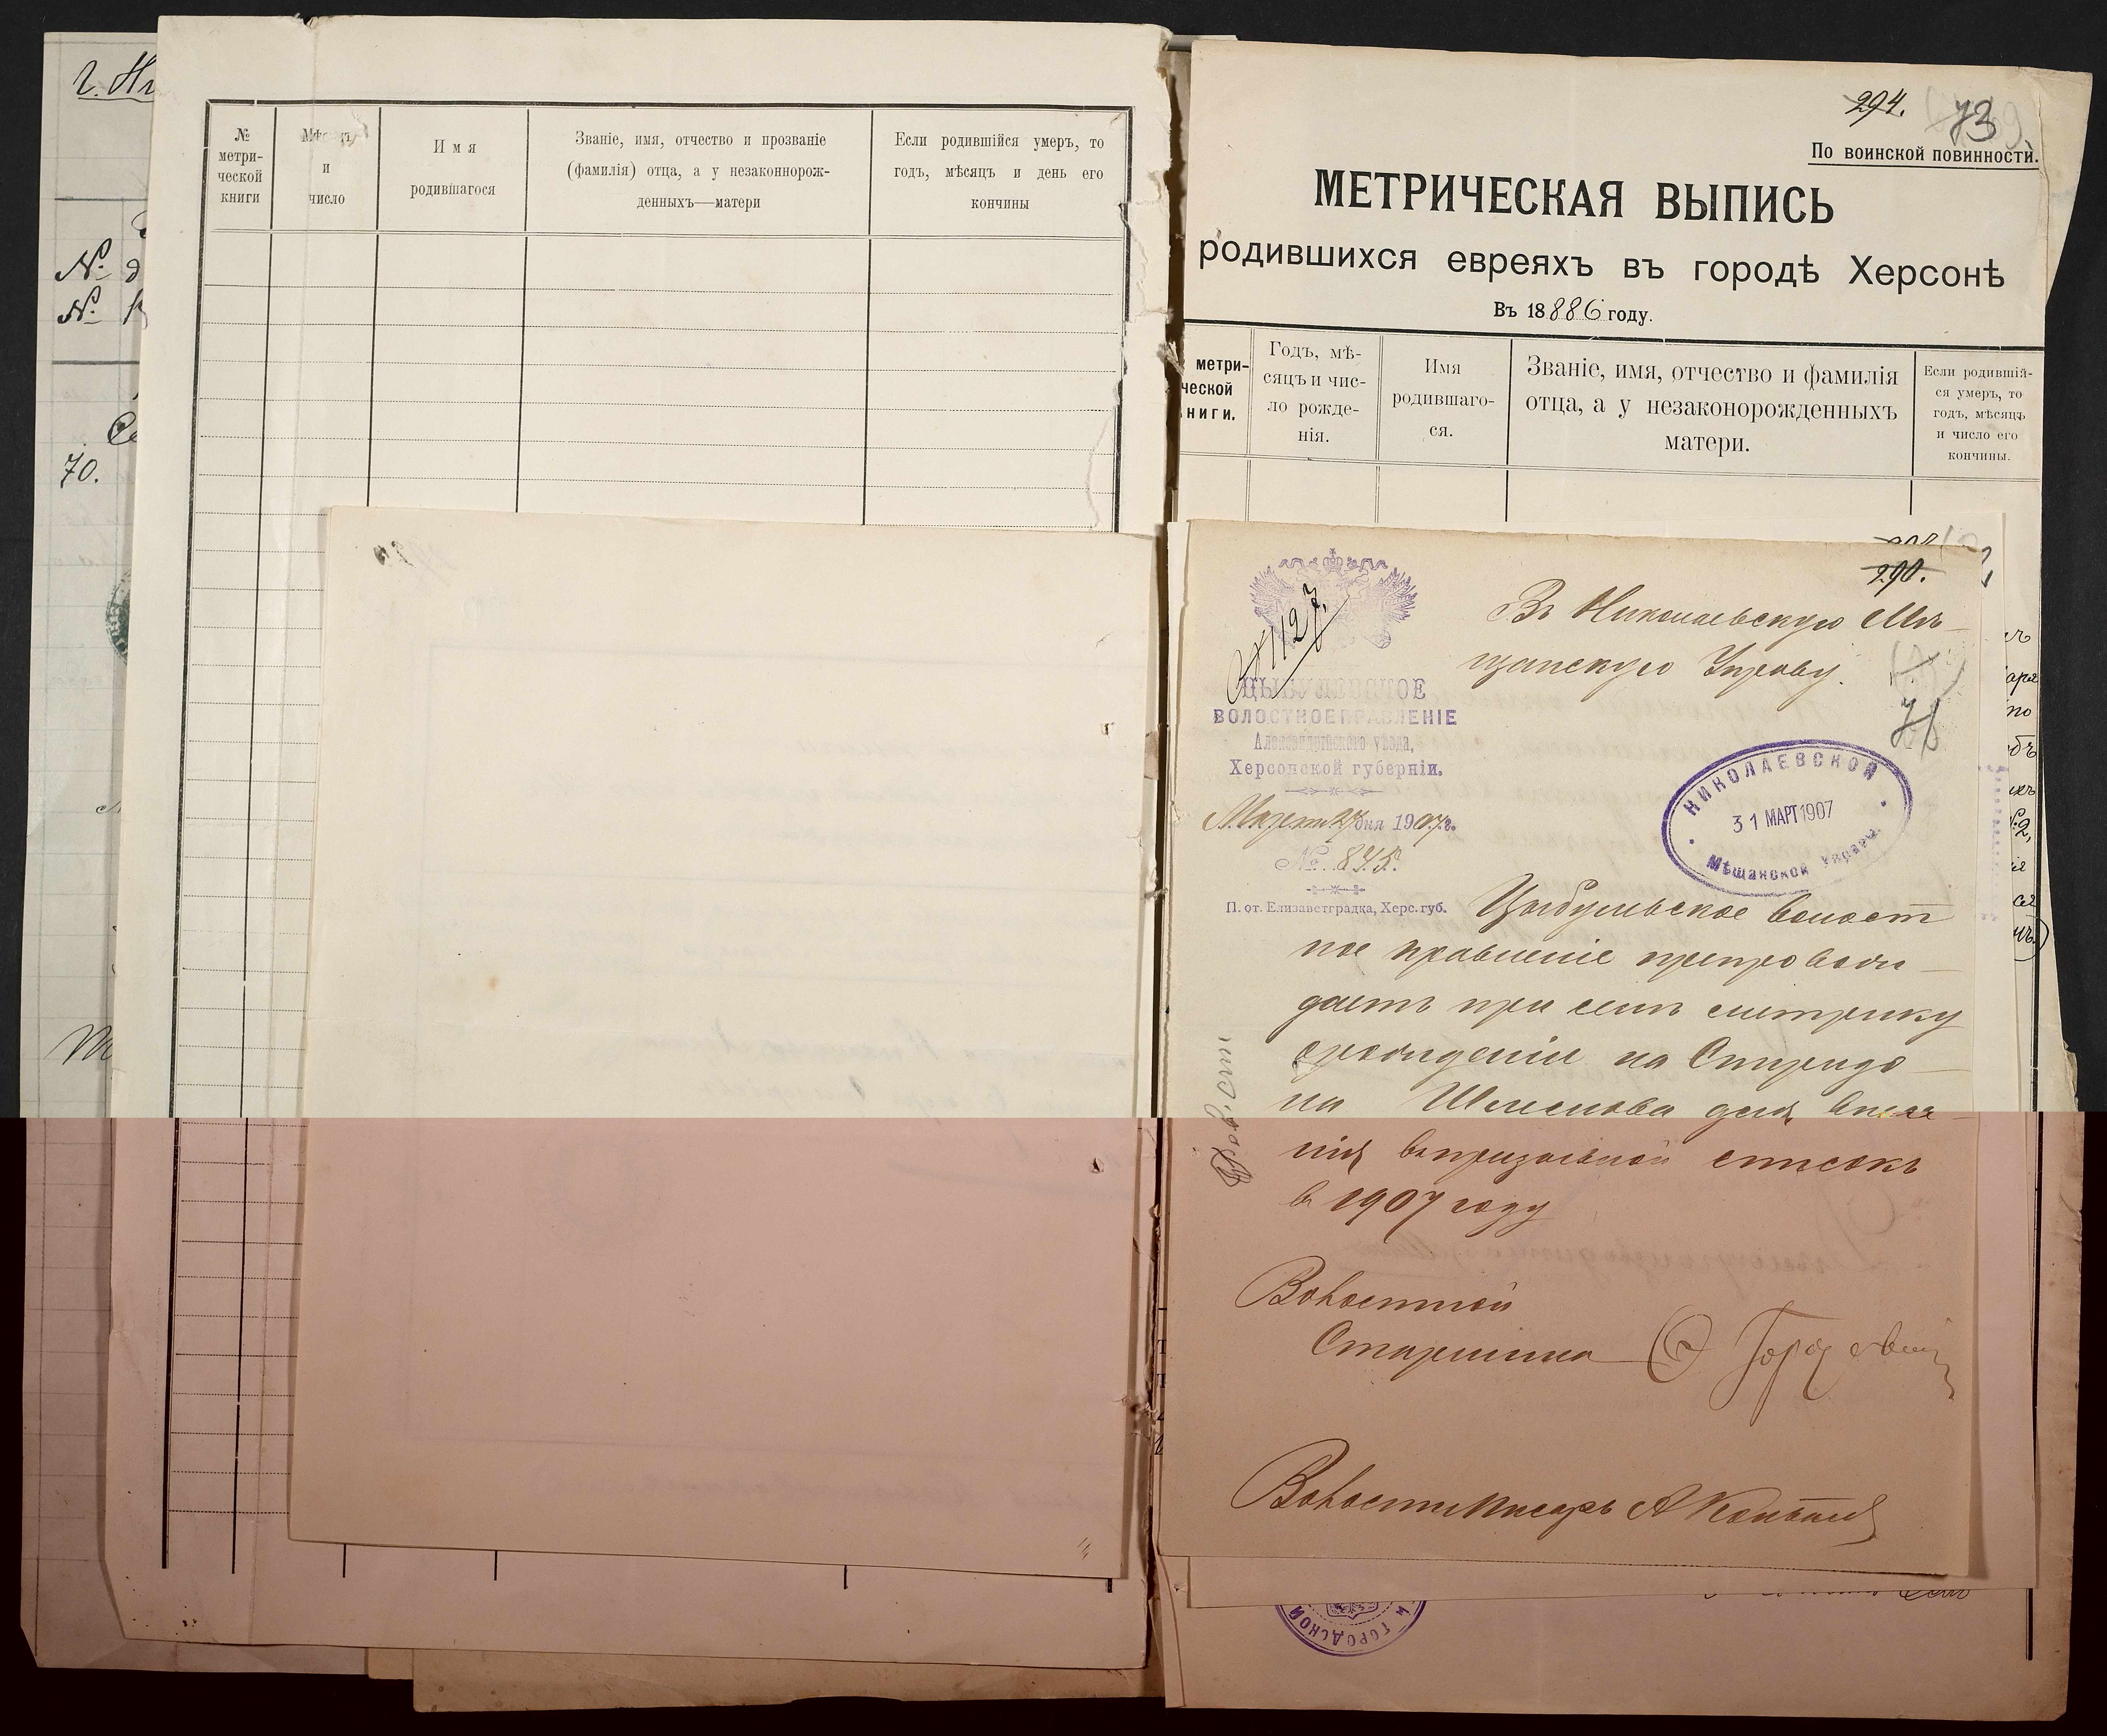 г. Ни
№ д
№
70.
№ метри- ческой книги
Мѣсяцъ и число
Имя родившагося
Званіе, имя, отчество и прозваніе
(фамилія) отца, а у незаконнорож-
денныхъ—матери
Если родившійся умеръ, то
годъ, мѣсяцъ и день его
кончины
294. 73
По воинской повинности.
МЕТРИЧЕСКАЯ ВЫПИСЬ
родившихся евреяхъ въ городѣ Херсонѣ
Въ 18886 году.
метри-
ческой
ниги.
Годъ, мѣ-
сяцъ и чис-
ло рожде-
нія.
Имя
родившаго-
ся.
Званіе, имя, отчество и фамилія
отца, а у незаконорожденныхъ
матери.
Если родившій-
ся умеръ, то
годъ, мѣсяцъ
и число его
кончины.
290.
71
Въ Николаевскую Мѣ-
щанскую Управу.
1127.
ЦЫБУЛЕВСКОЕ
ВОЛОСТНОЕ ПРАВЛЕНІЕ
Александрійскаго уѣзда,
Херсонской губерніи.
Марта 27 дня 1907 г.
№ 845.
П. от. Елизаветградка, Херс. губ.
НИКОЛАЕВСКОЙ
31 МАРТ 1907
Мѣщанской Управы
Цыбульское волост
ное правленіе препровож-
даетъ при семъ метрику
о рожденіи на Спиридо-
на Шлемова для внесе-
нія въ призывной списокъ
в 1907 году
Волостной
Старшина
Волостн Писарь
ГОРОДСКОЙ